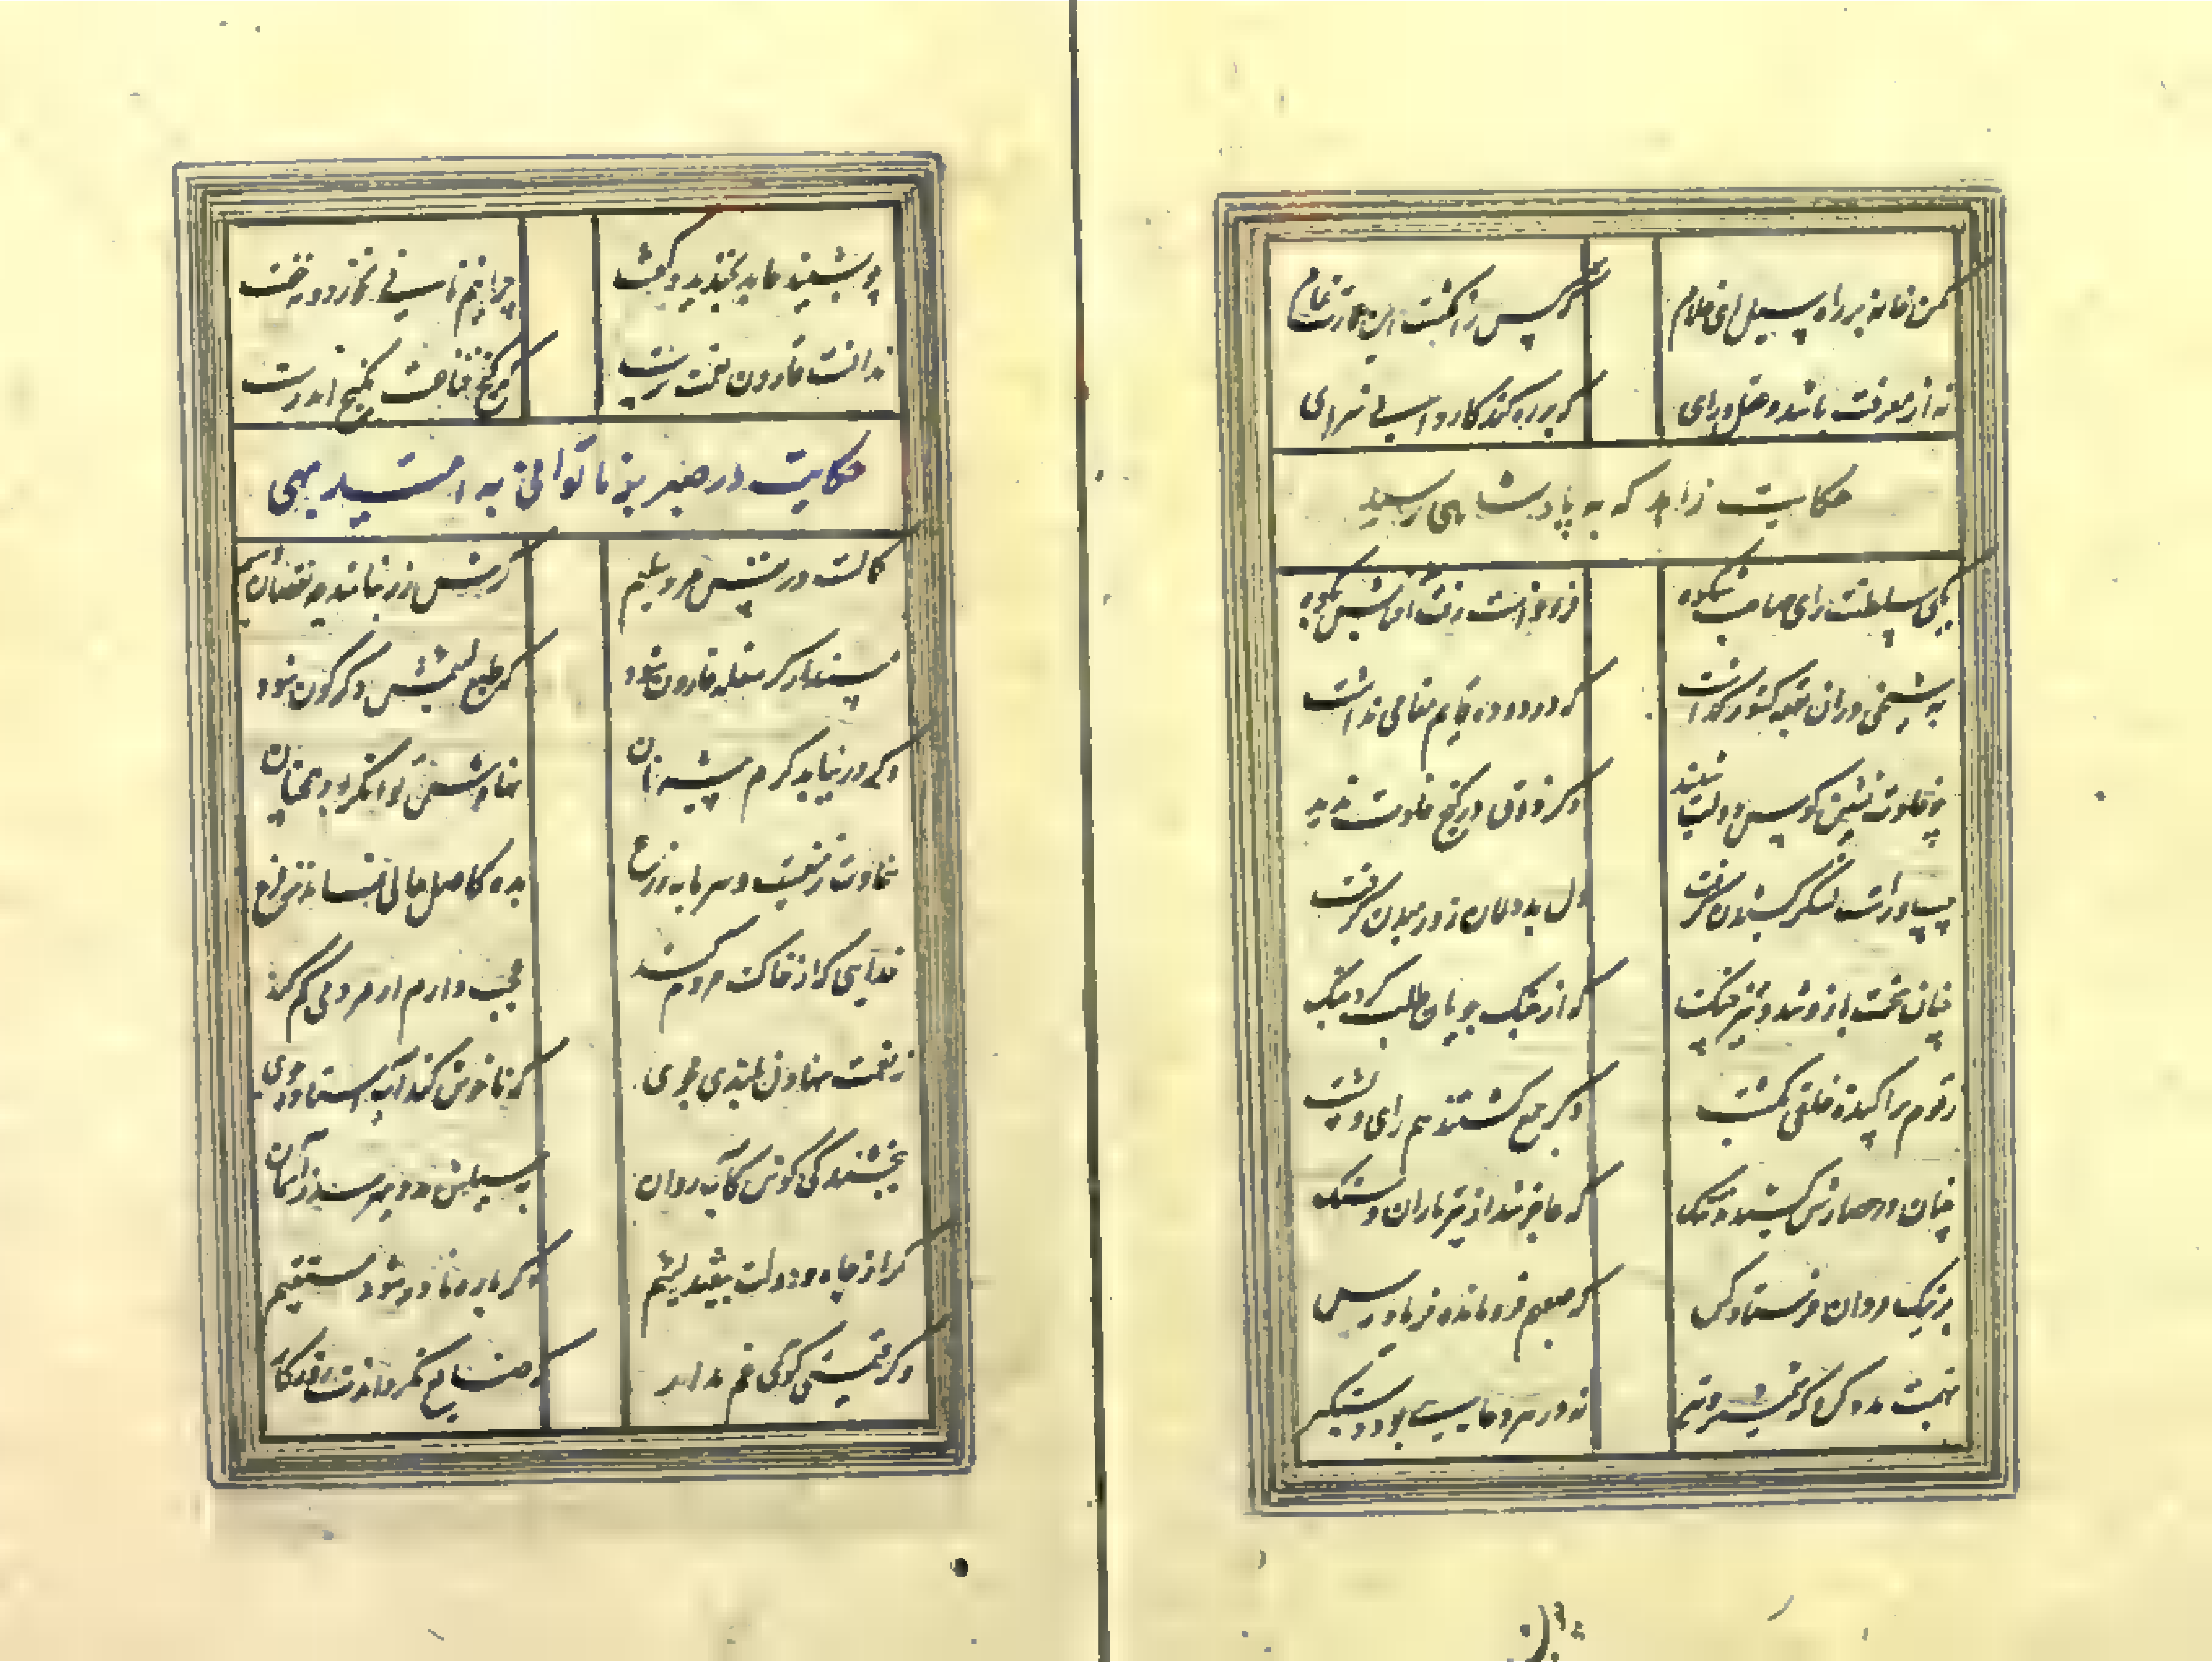 مکن خانه بر راه سیل ای غلام
که کس را نگشت این عمارت تمام
نه از معرفت باشد و عقل و رای
که بر ره کند کاروانی سرای
حکایت زاهد که به پادشاهی رسید
یکی سلطنت ران صاحب شکوه
فرو خواست رفت آفتابش بکوه
به شیخی در آن بقعه کشور گذاشت
که در دوده قایم مقامی نداشت
چو خلوت نشین کوس دولت شنید
دگر ذوق در کنج خلوت ندید
چپ و راست لشکر کشیدن گرفت
دل پردلان زو رمیدن گرفت
چنان سخت بازو شد و تیز چنگ
که از جنگ جویان طلب کرد جنگ
ز قوم پراکنده خلقی بکشت
دگر جمع گشتند هم رای و پشت
چنان در حصارش کشیدند تنگ
که عاجز شد از تیر باران و سنگ
بر نیک مردان فرستاد کس
که صعبم فرو مانده فریاد رس
بهمت مدد کن که شمشیر و تیر
نه در هر وغایی بود دستگیر
چو بشنید عابد بخندید و گفت
چرا نیم نانی نخورد و نخفت
ندانست قارون نعمت پرست
که گنج قناعت بکنج اندرست
حکایت در صبر بر ناتوانی به امید بهی
کمالست در نفس مرد کریم
گرش زر نباشد چه نقصان و بیم
مپندار گر سفله قارون شود
که طبع لئیمش دگرگون شود
وگر در نیابد کرم پیشه نان
نهادش توانگر بود همچنان
سخاوت زمینست و سرمایه زرع
بده کاصل خالی نماند ز فرع
خدایی که از خاک مردم کند
عجب دارم ار مردمی گم کند
ز نعمت نهادن بلندی مجوی
که ناخوش کند آب استاده بوی
ببخشندگی کوش کآب روان
به سیلش مدد میرسد ز آسمان
گر از جاه و دولت بیفتد لئیم
دگر باره نادر شود مستقیم
وگر قیمتی گوهری غم مدار
که ضایع نگرداندت روزگار